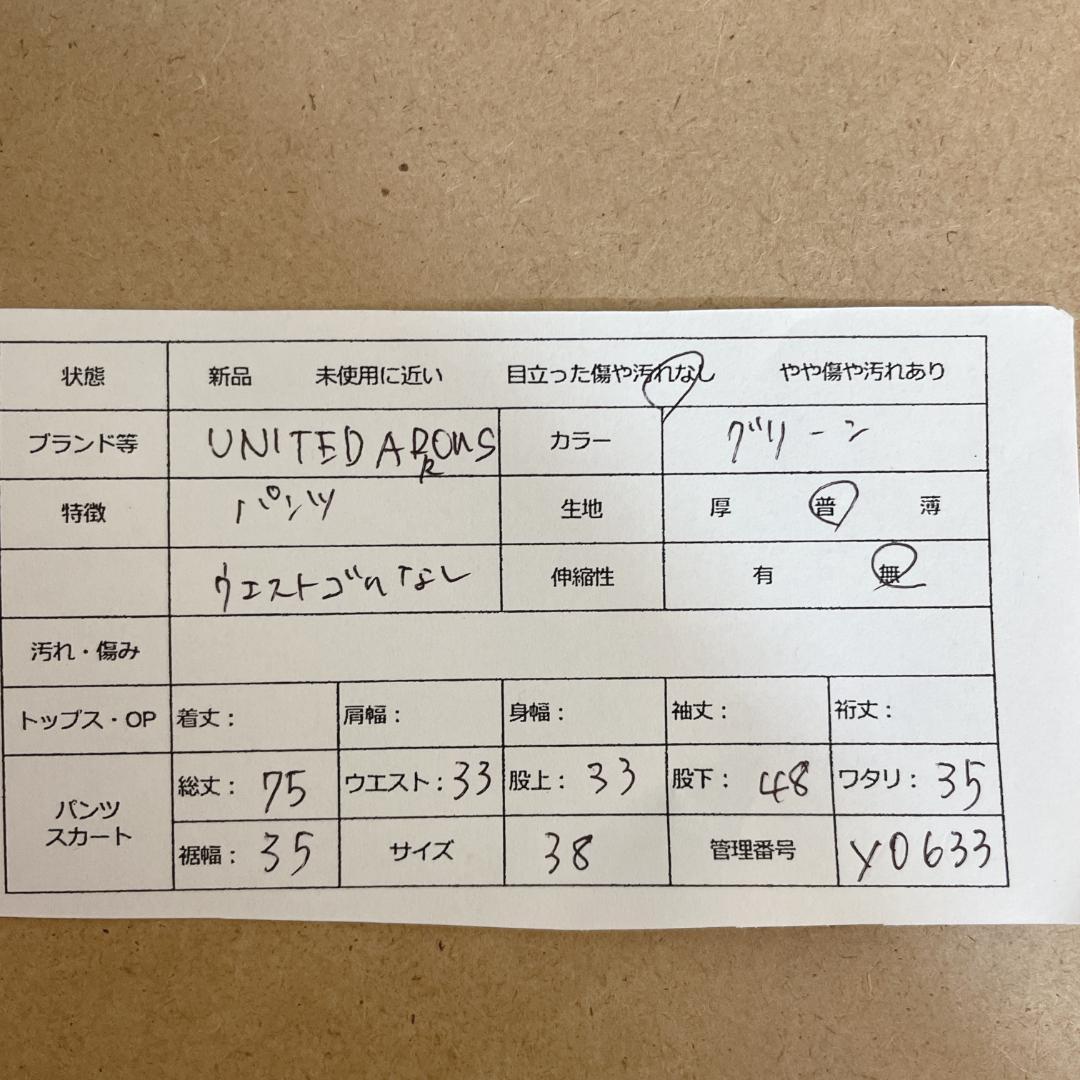 状態 新品 未使用に近い 目立った傷や汚れなし やや傷や汚れあり
ブランド等 UNITED ARROWS カラー グリーン
特徴 パンツ 生地 厚 普 薄
ウエストゴムなし 伸縮性 有 無
汚れ・傷み
トップス・OP 着丈： 肩幅： 身幅： 袖丈： 裄丈：
パンツ スカート 総丈：75 ウエスト：33 股上：33 股下：48 ワタリ：35
裾幅：35 サイズ 38 管理番号 Y0633